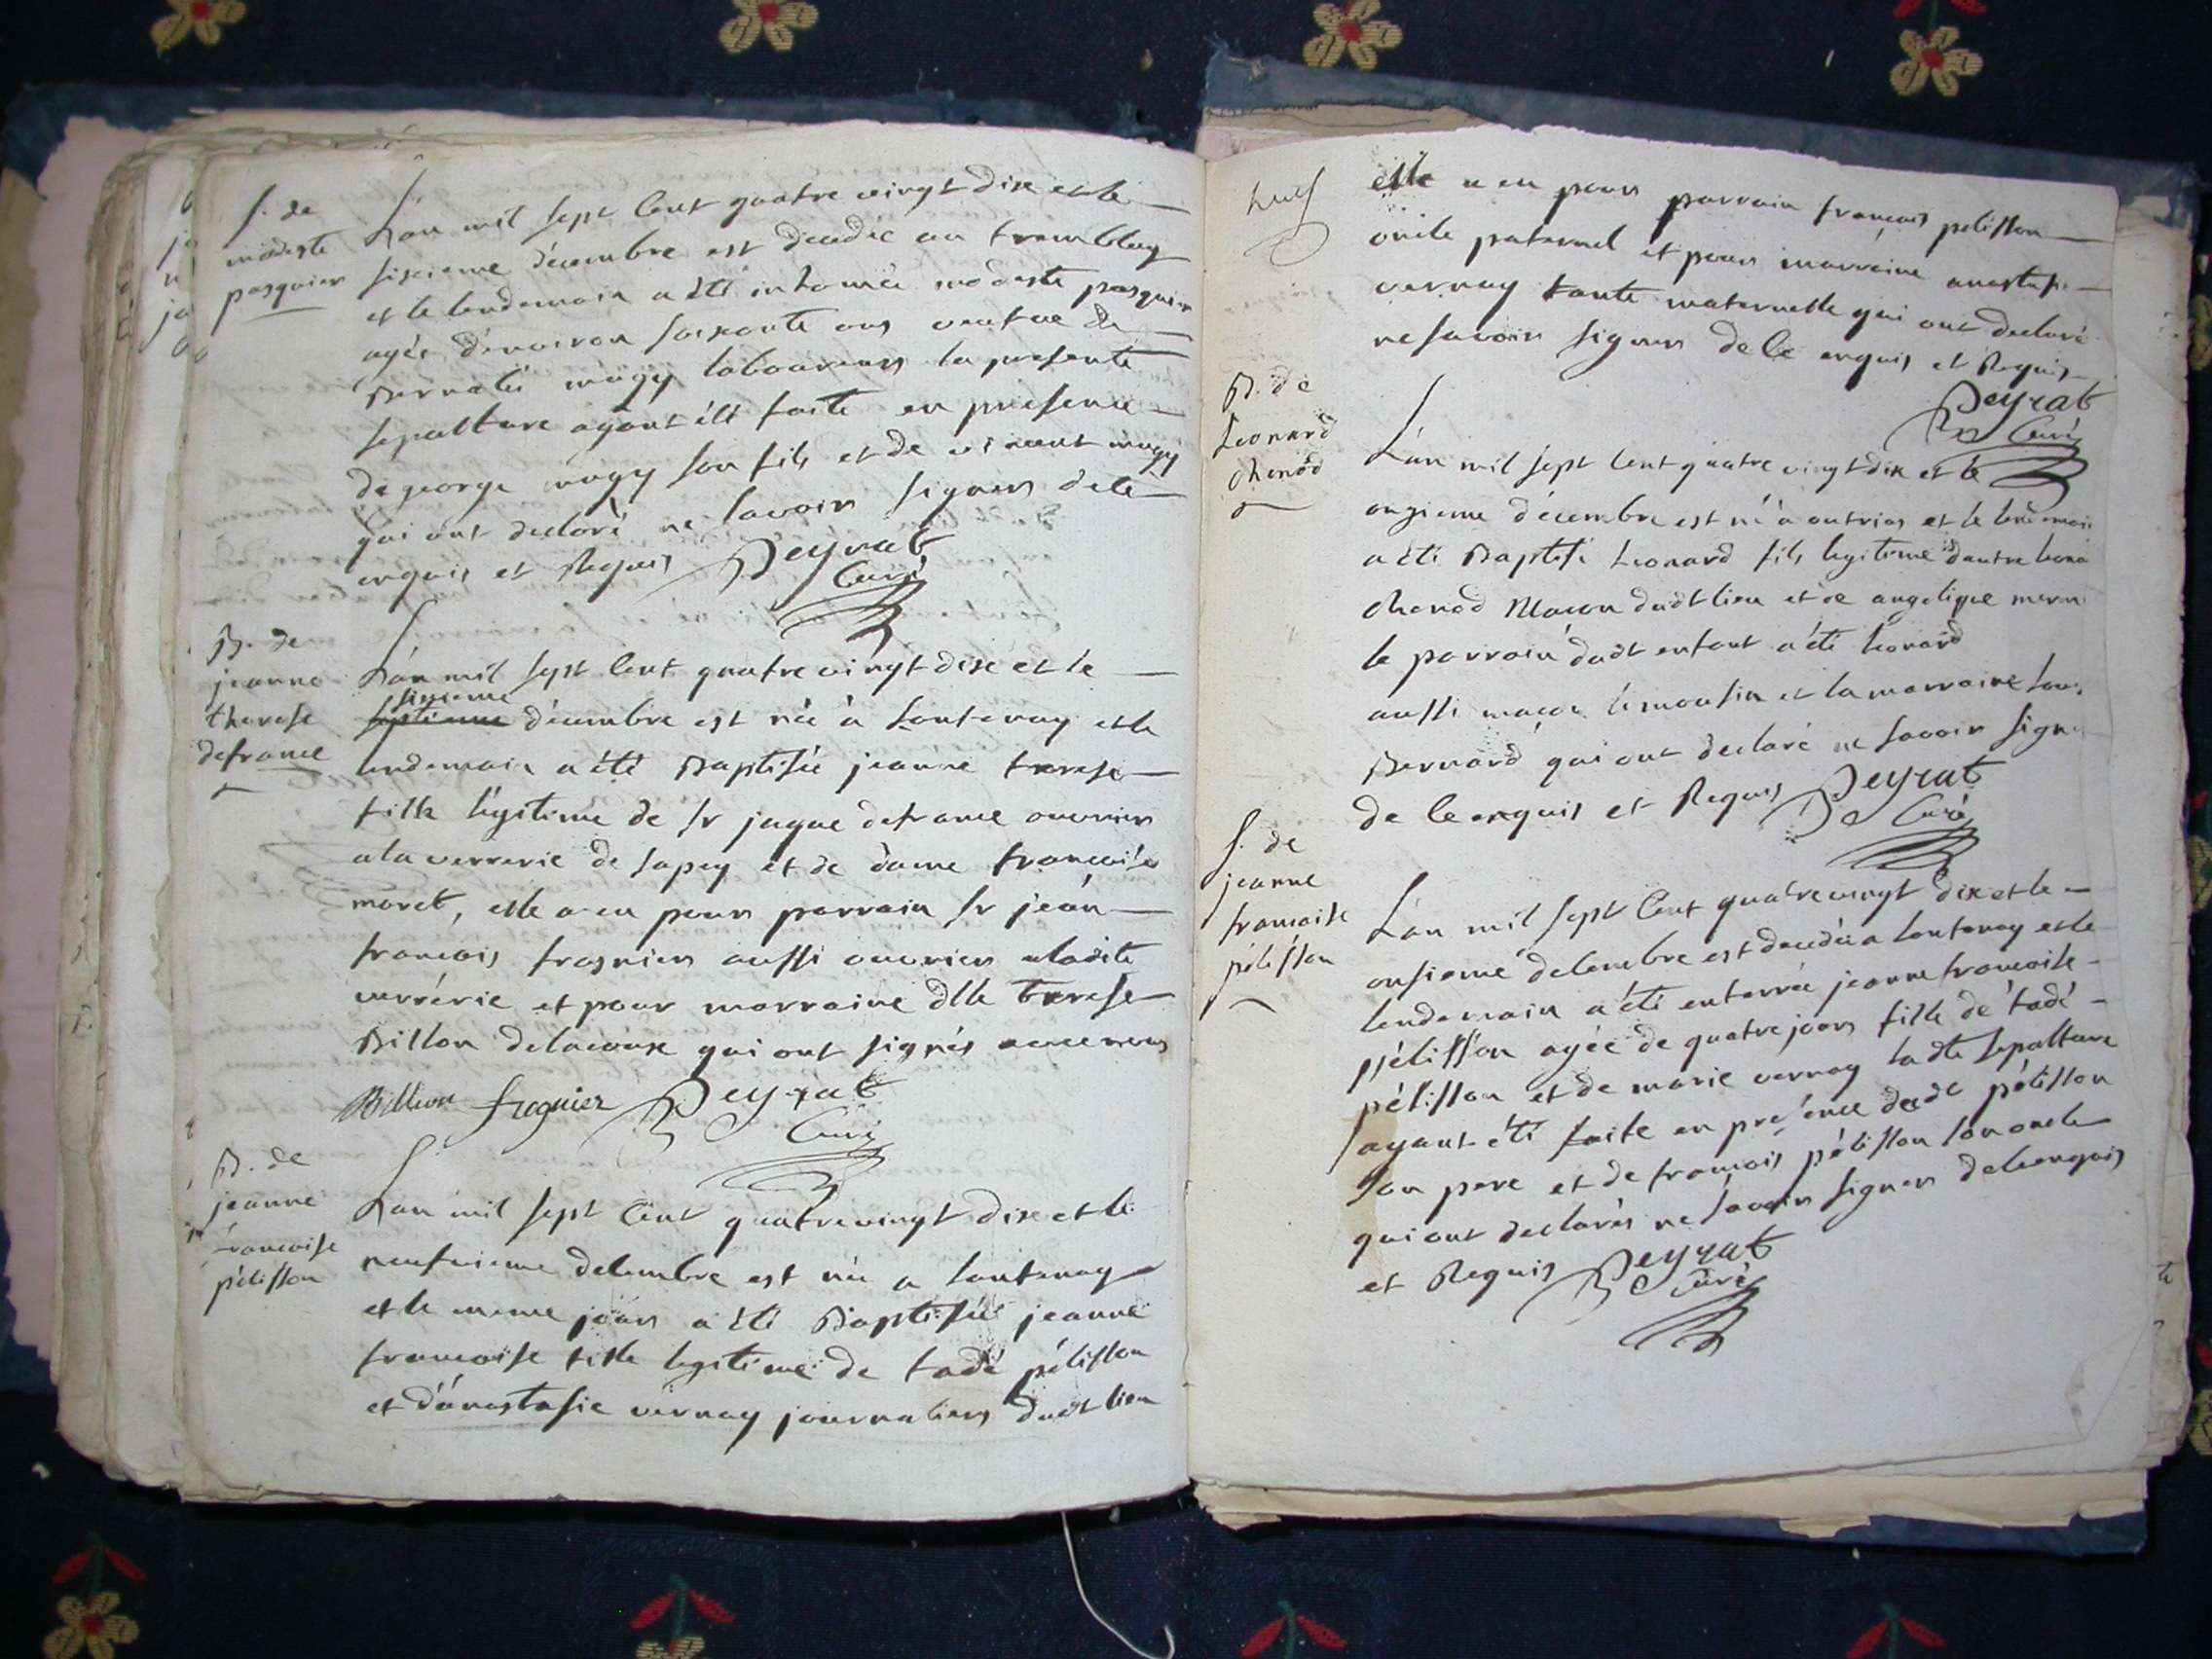 S. de
modeste
pasquier
L'an mil sept cent quatre vingt dix et le
sixieme décembre est décédée au tremblay
et le lendemain a été inhumée modeste pasquier
agée d'environ soixante ans veufve de
magy laboureurs la presente
sepulture ayant été faite en presence
de george magy son fils et de vincent magy
qui ont declaré ne savoir signer de ce
enquis et Requis Peyrat
Curé
B. de
jeanne
therese
defrance
L'an mil sept cent quatre vingt dix et le
sixieme
septieme décembre est née a fontenay et le
lendemain a été Baptisée jeanne terese
fille légitime de sr jaque defrance ouvrier
a la verrerie de sapey et de dame francoise
moret, elle a eu pour parrain sr jean
francois fragnier aussi ouvrier aladite
verrérie et pour marraine dlle terese
Billon delacoux qui ont signés avec nous
Billion fragnier Peyrat
Curé
B. de
jeanne
francoise
pélisson
L'an mil sept cent quatre vingt dix et le
neufvieme décembre est née a fontenay
et le meme jour a été Baptisée jeanne
francoise fille legitime de tadé pélisson
et d'anastasie vernay journaliers dudt lieu
elle a eu pour parrain francois pelisson
oncle paternel et pour marraine anastasie
vernay tante maternelle qui ont declaré
ne savoir signer de ce enquis et Requis
Peyrat
Curé
B. de
Leonard
chenod
L'an mil sept cent quatre vingt dix et le
onzieme décembre est né a et le lendemain
a été Baptisé Leonard fils legitime d'autre
chenod Macon dudt lieu et de angelique
le parrain dudt enfant a été léonard
aussi macon limousin et la marraine
Bernard qui ont declaré ne savoir
de ce enquis et Requis Peyrat
Curé
S. de
jeanne
francoise
pélisson
L'an mil sept cent quatre vingt dix et le
onsieme decembre est decedée a fontenay et le
lendemain a été enterrée jeanne francoise
pélisson agée de quatre jours fille de tadé
pélisson et de marie vernay ladte sepulture
ayant été faite en présence dudt pélisson
son pere et de francois pélisson son oncle
qui ont declarés ne savoir signer de ce enquis
et Requis Peyrat
Curé